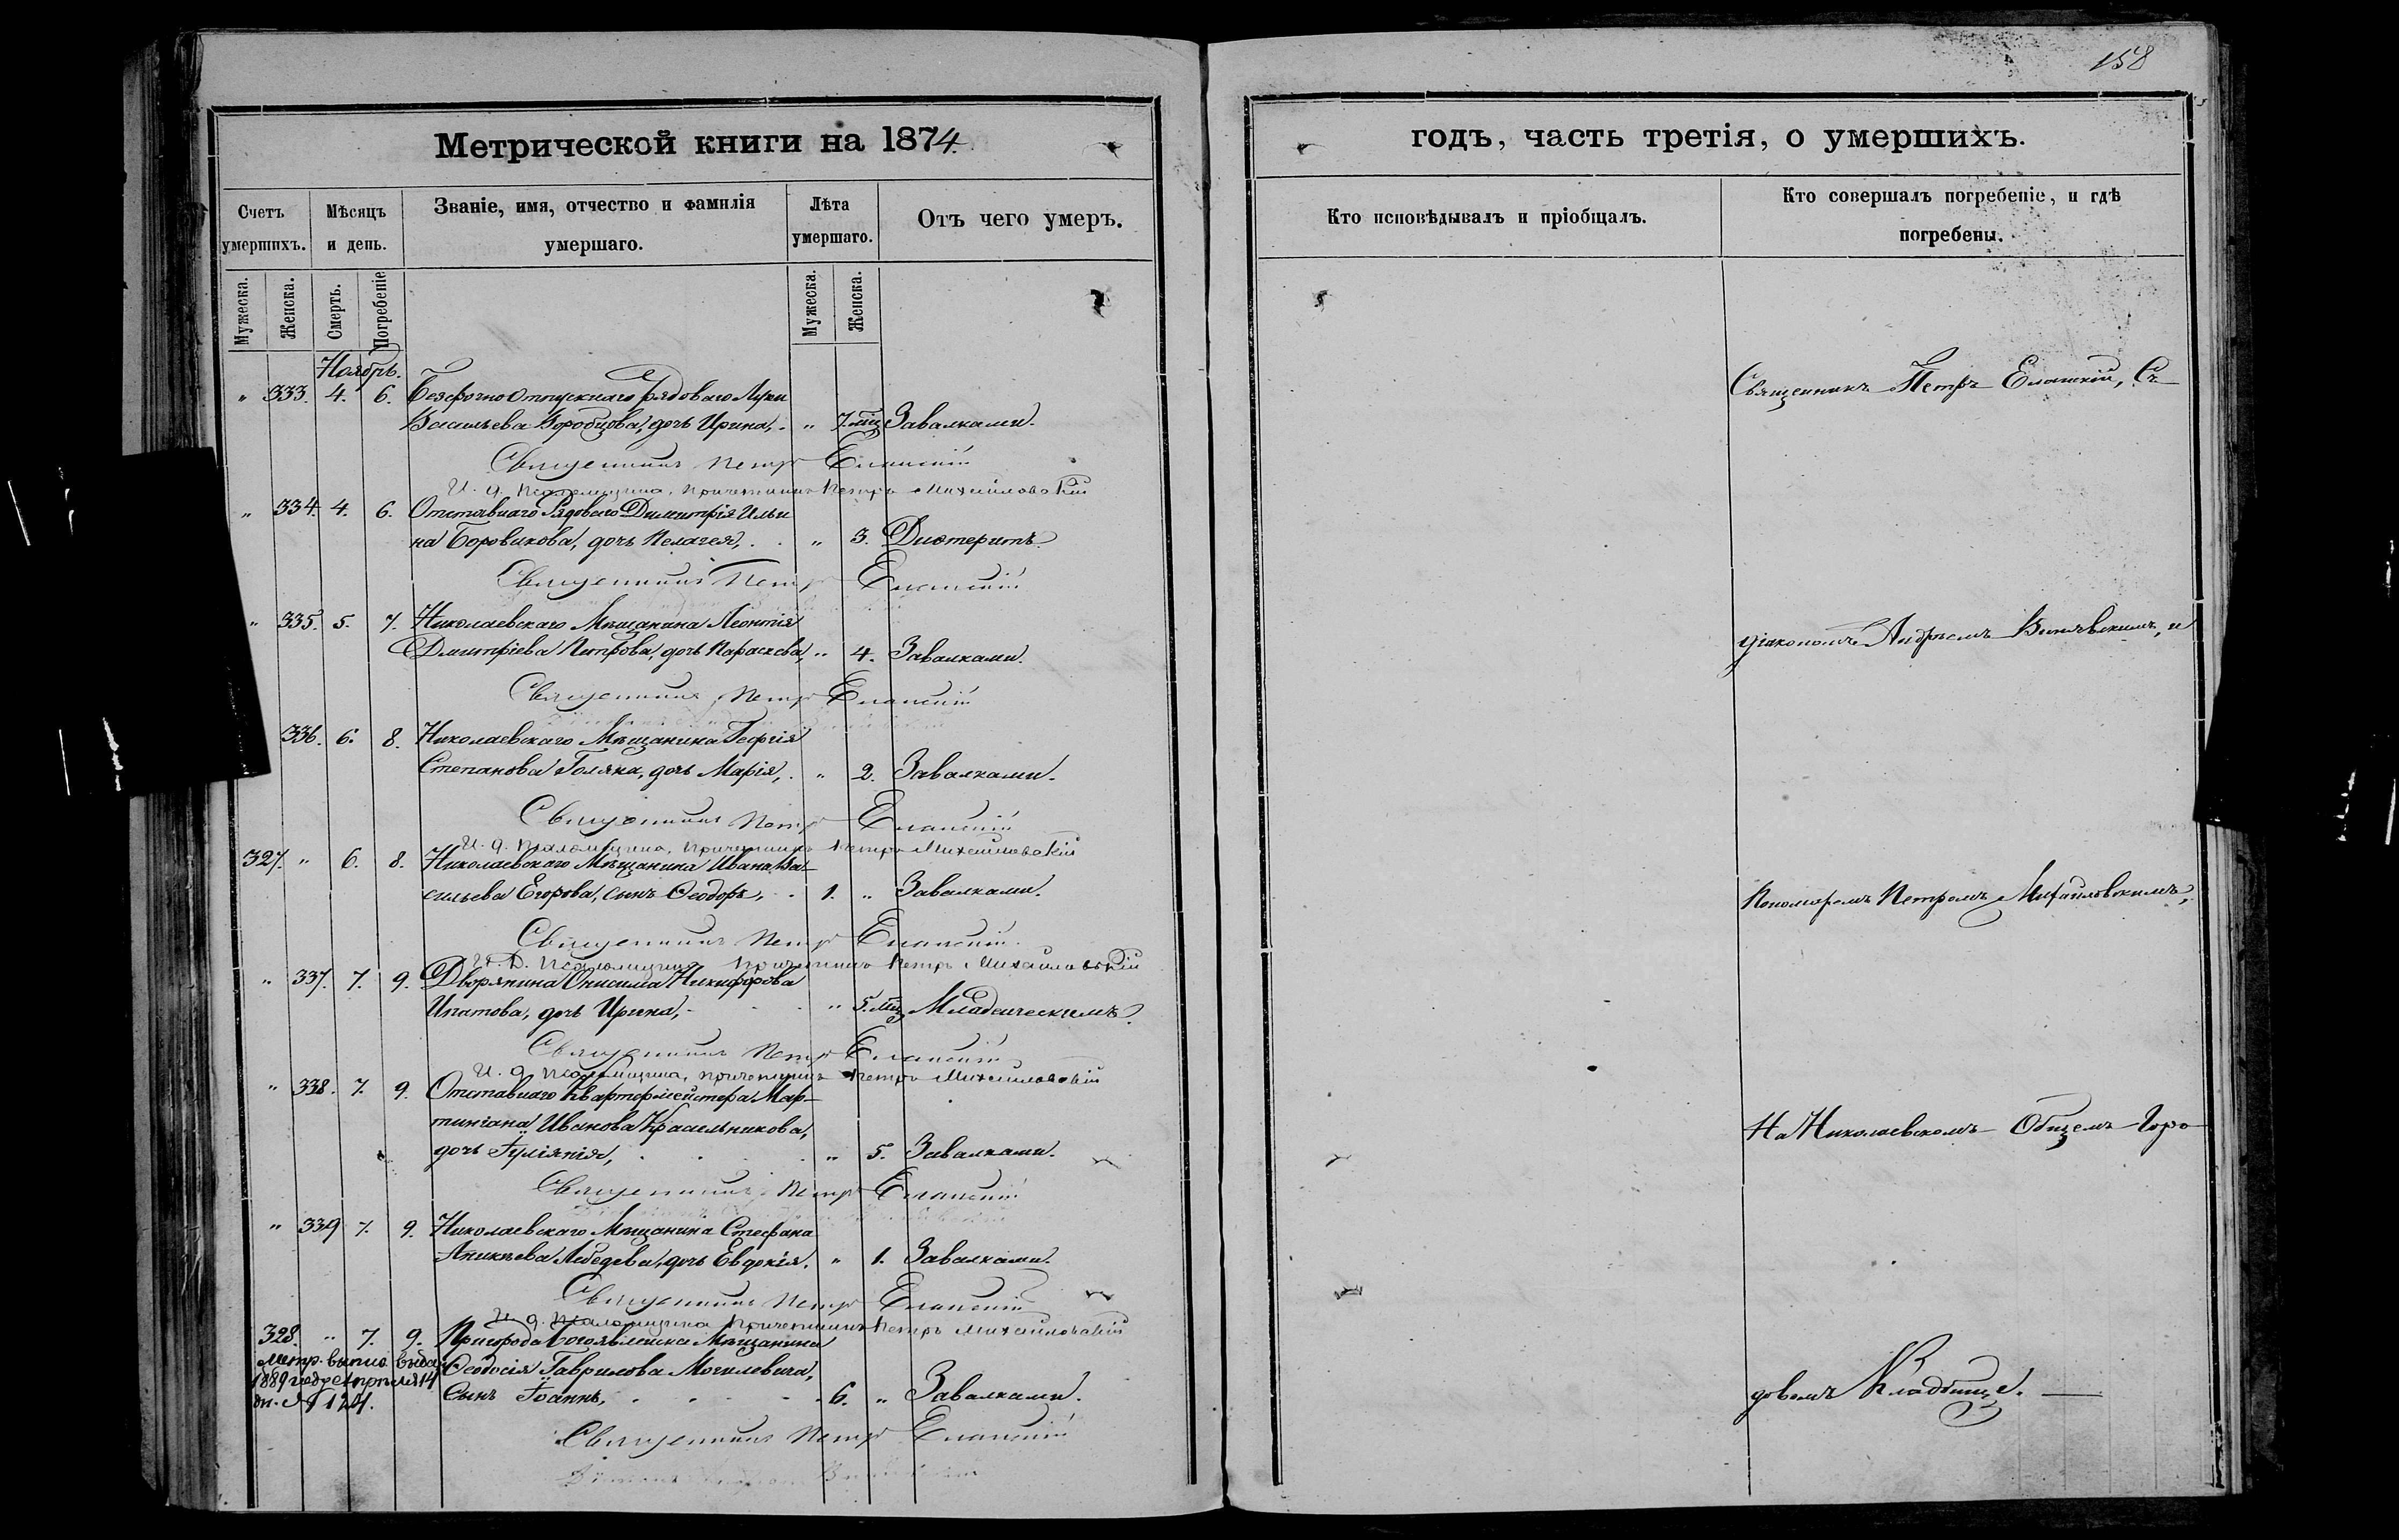 158
Метрической книги на 1874.
годъ, часть третія, о умершихъ.
Счетъ умершихъ.
Мѣсяцъ и день.
Званіе, имя, отчество и фамилія умершаго.
Лѣта умершаго.
Отъ чего умеръ.
Кто исповѣдывалъ и пріобщалъ.
Кто совершалъ погребеніе, и гдѣ погребены.
Мужеска. Женска. Смерть. Погребеніе
Мужеска. Женска.
Ноябрь.
" 333. 4. 6. Безсрочно отпускнаго рядоваго Луки
Васильева Воробцова, дочь Ирина, " 7 мц Завалками.
Священникъ Петръ Еланскій
И. д. Псаломщика, причетникъ Петръ Михайловскій
" 334. 4. 6. Отставнаго Рядоваго Димитрія Ильи
на Боровикова, дочь Пелагея, " 3. Дифтеритъ.
Священникъ Петръ Еланскій
" 335. 5. 7. Николаевскаго Мѣщанина Леонтія
Дмитріева Петрова, дочь Параскева, " 4. Завалками.
Священникъ Петръ Еланскій
336. 6. 8. Николаевскаго Мѣщанина Георгія
Степанова Голяка, дочь Марія, " 2. Завалками.
Священникъ Петръ Еланскій
И. д. Псаломщика, причетникъ Петръ Михайловскій
327. " 6. 8. Николаевскаго Мѣщанина Ивана Ва-
сильева Егорова, сынъ Ѳеодоръ, 1. " Завалками.
Священникъ Петръ Еланскій
И. д. Псаломщика причетникъ Петръ Михайловскій
" 337. 7. 9. Дворянина Онисима Никифорова
Ипатова, дочь Ирина, " 5. мц Младенческимъ.
Священникъ Петръ Еланскій
И. д. Псаломщика, причетникъ Петръ Михайловскій
" 338. 7. 9. Отставнаго Квартирмейстера Мар-
тиніана Иванова Красельникова,
дочь Іуліянія, " 5. Завалками.
Священникъ Петръ Еланскій
" 339 7. 9. Николаевскаго Мѣщанина Стефана
Аникѣева Лебедева, дочь Евдокія. " 1. Завалками.
Священникъ Петръ Еланскій
И. д. Псаломщика причетникъ Петръ Михайловскій
328. " 7. 9. Пригорода Богоявленска Мѣщанина
Метр. выпис. выда:
Ѳеодосія Гаврилова Могилевича,
1889 года Апрѣля 14
Сынъ Іоаннъ, 6. " Завалками.
дн. № 124.
Священникъ Петръ Еланскій
Священникъ Петръ Еланскій, Съ
діакономъ Андреемъ и
Пономаремъ Петромъ Михайловскимъ,
На Николаевскомъ Общемъ Горо
довомъ Кладбище.